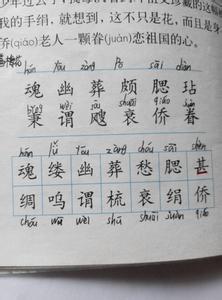 我的手绢，就想到，这不只是花，而且是身
侨(qiáo)老人一颗眷(juàn)恋祖国的心。
hún yōu zàng pō sāi diàn
魂 幽 葬 颇 腮 玷
秉 谓 飕 衰 侨 眷
bǐng wèi sōu shuāi qiáo juàn
hún lǚ yōu zàng chóu sāi shèn
魂 缕 幽 葬 愁 腮 甚
绸 呜 谓 梳 衰 绢 侨
chóu wū wèi shū shuāi juàn qiáo